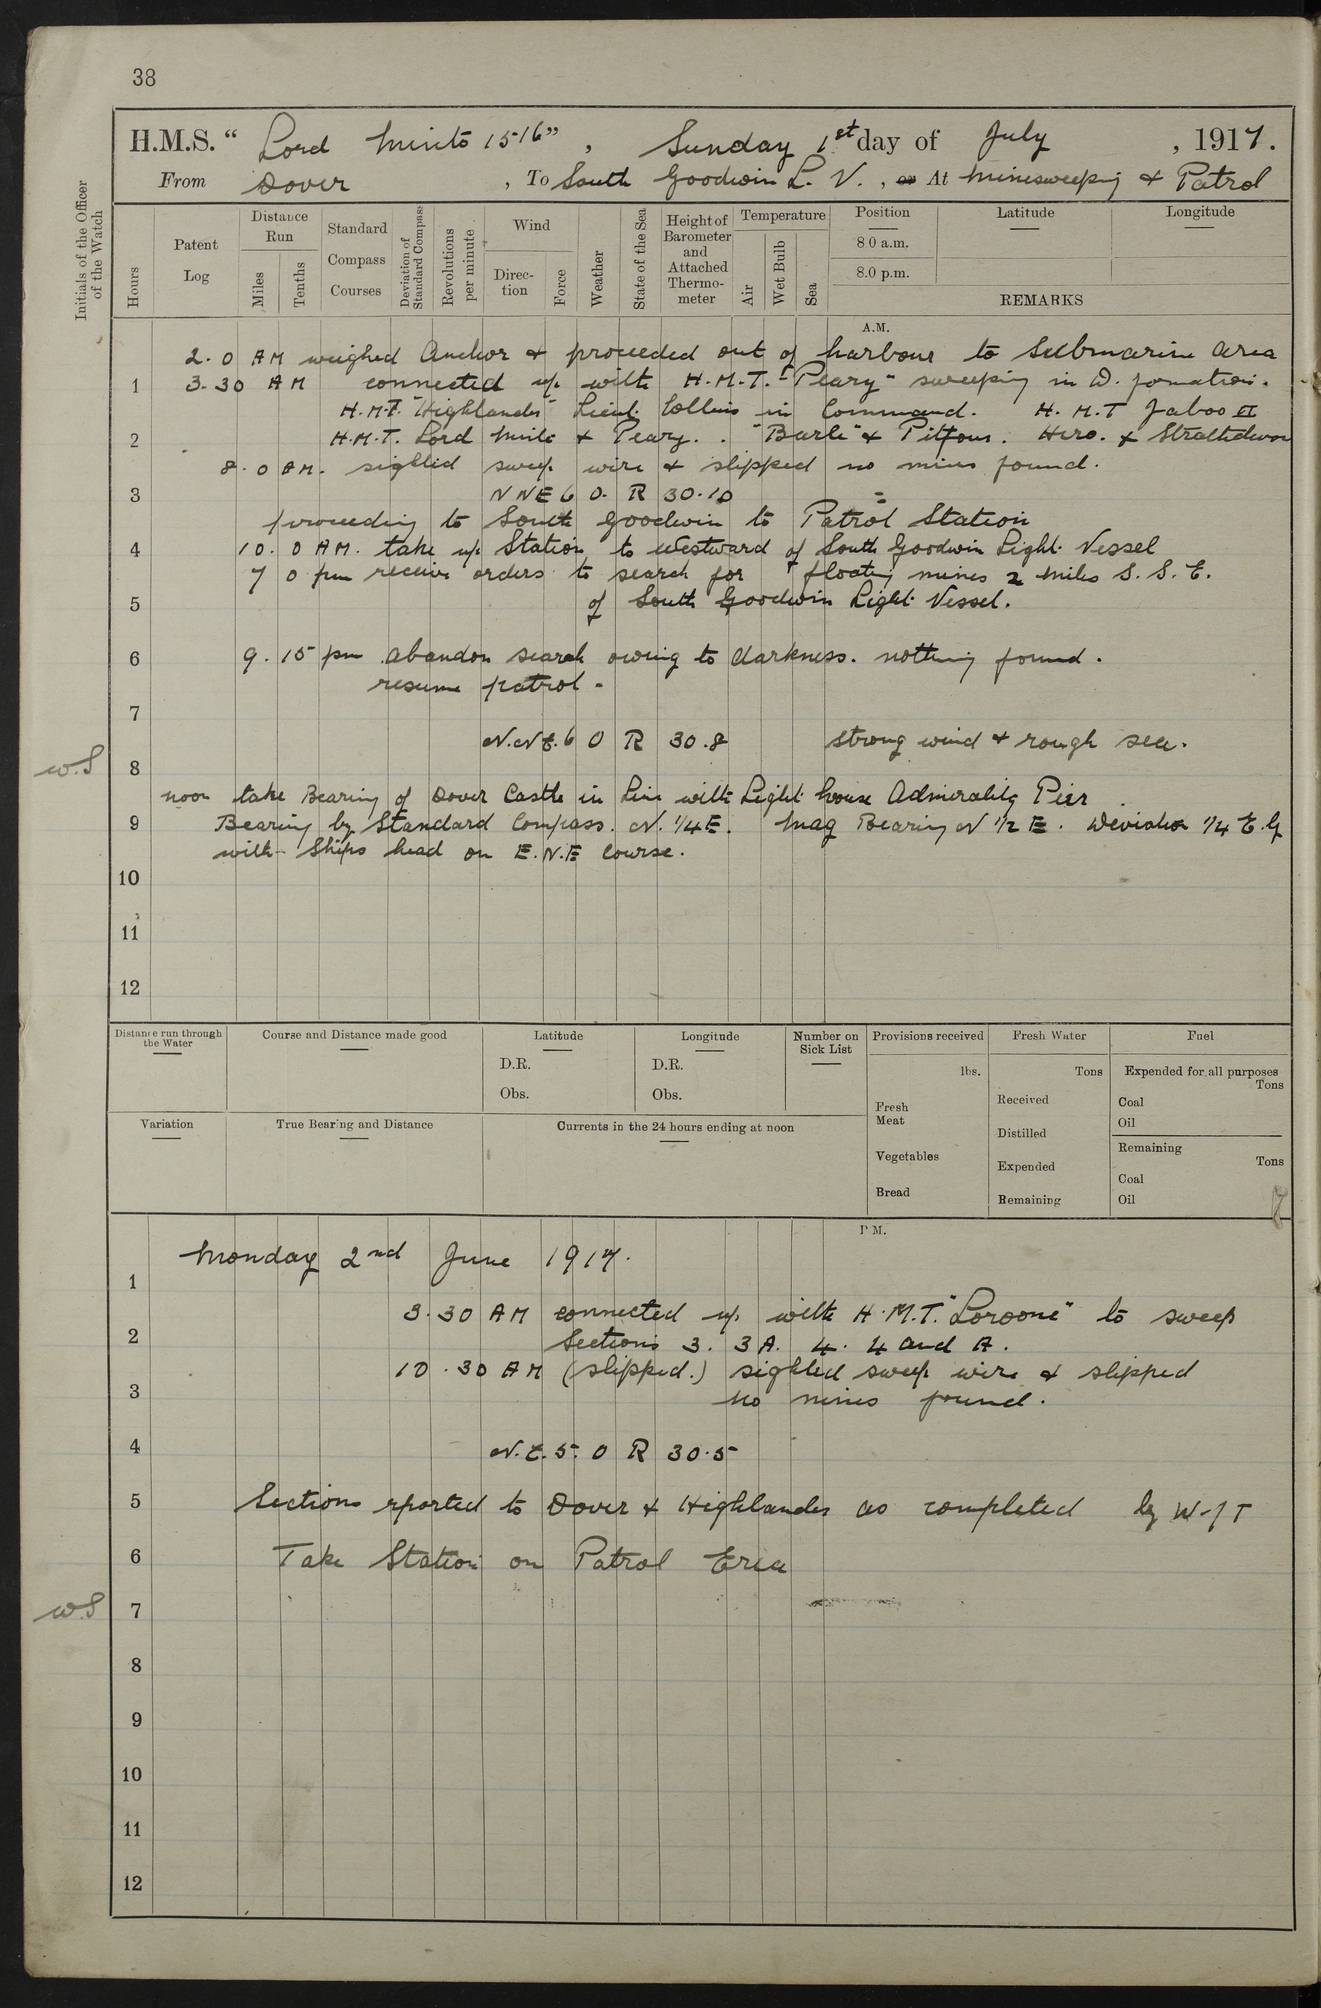 38
H.M.S. “ Lord Minto 1516 ” , Sunday 1st day of July , 1917.
From Dover , To South Goodwin L. V. , or At Minesweeping & Patrol
Initials of the Officer of the Watch
Hours
Patent Log
Distance Run
Miles
Tenths
Standard Compass Courses
Deviation of Standard Compass
Revolutions per minute
Wind
Direction
Force
Weather
State of the Sea
Height of Barometer and Attached Thermometer
Temperature
Air
Wet Bulb
Sea
Position
8 0 a.m.
8.0 p.m.
Latitude
Longitude
REMARKS
A.M.
2. 0 AM weighed Anchor & proceeded out of harbour to Submarine area
1 3.30 AM connected up with H.M.T. "Peary" sweeping in D. formation.
H.M.T. "Highlander" Lieut. Collins in Command. H. M. T Jaboo II
2 H.M.T. Lord Minto & Peary. . "Burli" & Pitfour. Hero. &
8. 0 AM. sighted sweep wire & slipped no mines found.
3 NNE 6 O. R 30.10
proceeding to South Goodwin to Patrol Station
4 10. 0 AM. take up Station to Westward of South Goodwin Light Vessel
7 0 pm receive orders to search for floating mines 2 miles S. S. E.
5 of South Goodwin Light Vessel.
6 9. 15 pm abandon search owing to darkness. nothing found.
resume patrol -
7
N.N.E. 6 O R 30.8 strong wind & rough sea.
W.S 8
noon take Bearing of Dover Castle in Line with Light house Admirality Pier
9 Bearing by Standard Compass. N. 1/4 E. Mag Bearing N 1/2 E. Deviation 1/4 E.ly
with Ships head on E.N.E Course.
10
11
12
Distance run through the Water
Course and Distance made good
Latitude
D.R.
Obs.
Longitude
D.R.
Obs.
Number on Sick List
Provisions received
lbs.
Fresh Meat
Vegetables
Bread
Fresh Water
Tons
Received
Distilled
Expended
Remaining
Fuel
Expended for all purposes
Tons
Coal
Oil
Remaining
Tons
Coal
Oil
Variation
True Bearing and Distance
Currents in the 24 hours ending at noon
P.M.
Monday 2nd June 1917.
1
3.30 AM connected up with H.M.T. "Loroone" to sweep
2 Sections 3. 3A. 4. 4 and A.
10.30 AM (slipped.) sighted sweep wire & slipped
3 no mines found.
4 N.E. 5. O R 30.5
5 Sections rported to Dover & Highlander as completed by W/T
6 Take Station on Patrol Erea
W.S 7
8
9
10
11
12